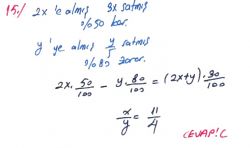 15./ 2x 'e almış 3x satmış
%50 kar.
y 'ye almış y/5 satmış
%80 zarar.
2x. 50/100 - y. 80/100 = (2x+y). 30/100
x/y = 11/4
CEVAP: C